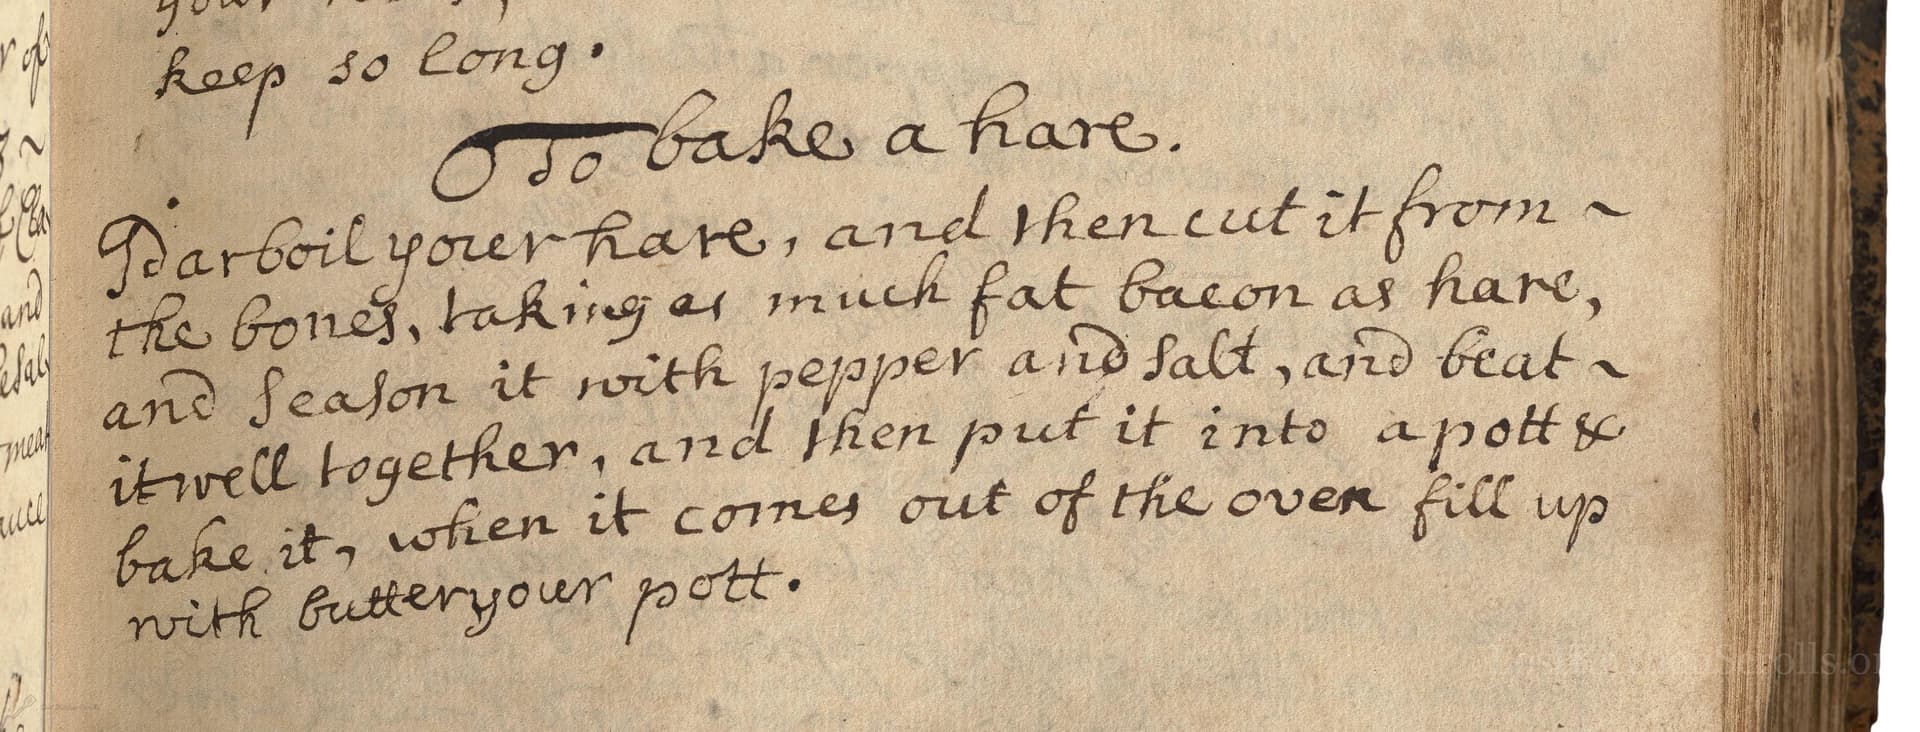 keep so long.
To bake a hare.
Parboil your hare, and then cut it from ~
the bones, taking as much fat bacon as hare,
and season it with pepper and salt, and beat ~
it well together, and then put it into a pott &
bake it, when it comes out of the oven fill up
with butter your pott.